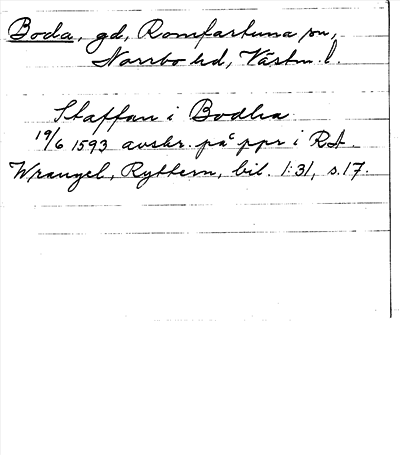 Boda, gd, Romfartuna sn,
Norrbo hd, Västm. l.
Staffan i Bodha
19/6 1593 avskr. på ppr i RA
Wrangel, Ryttern, bil. 1:31, s. 17.